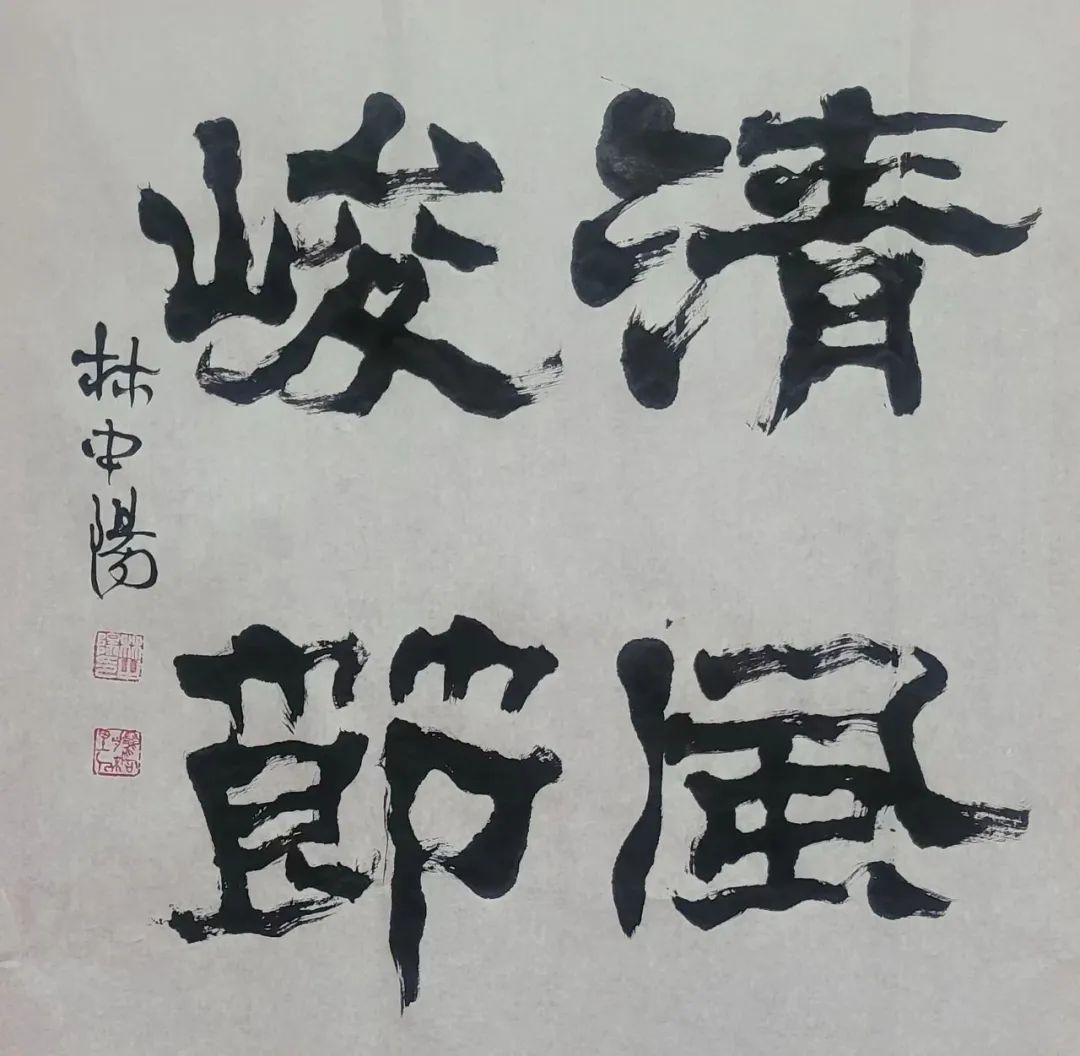 清風
峻節
林中陽